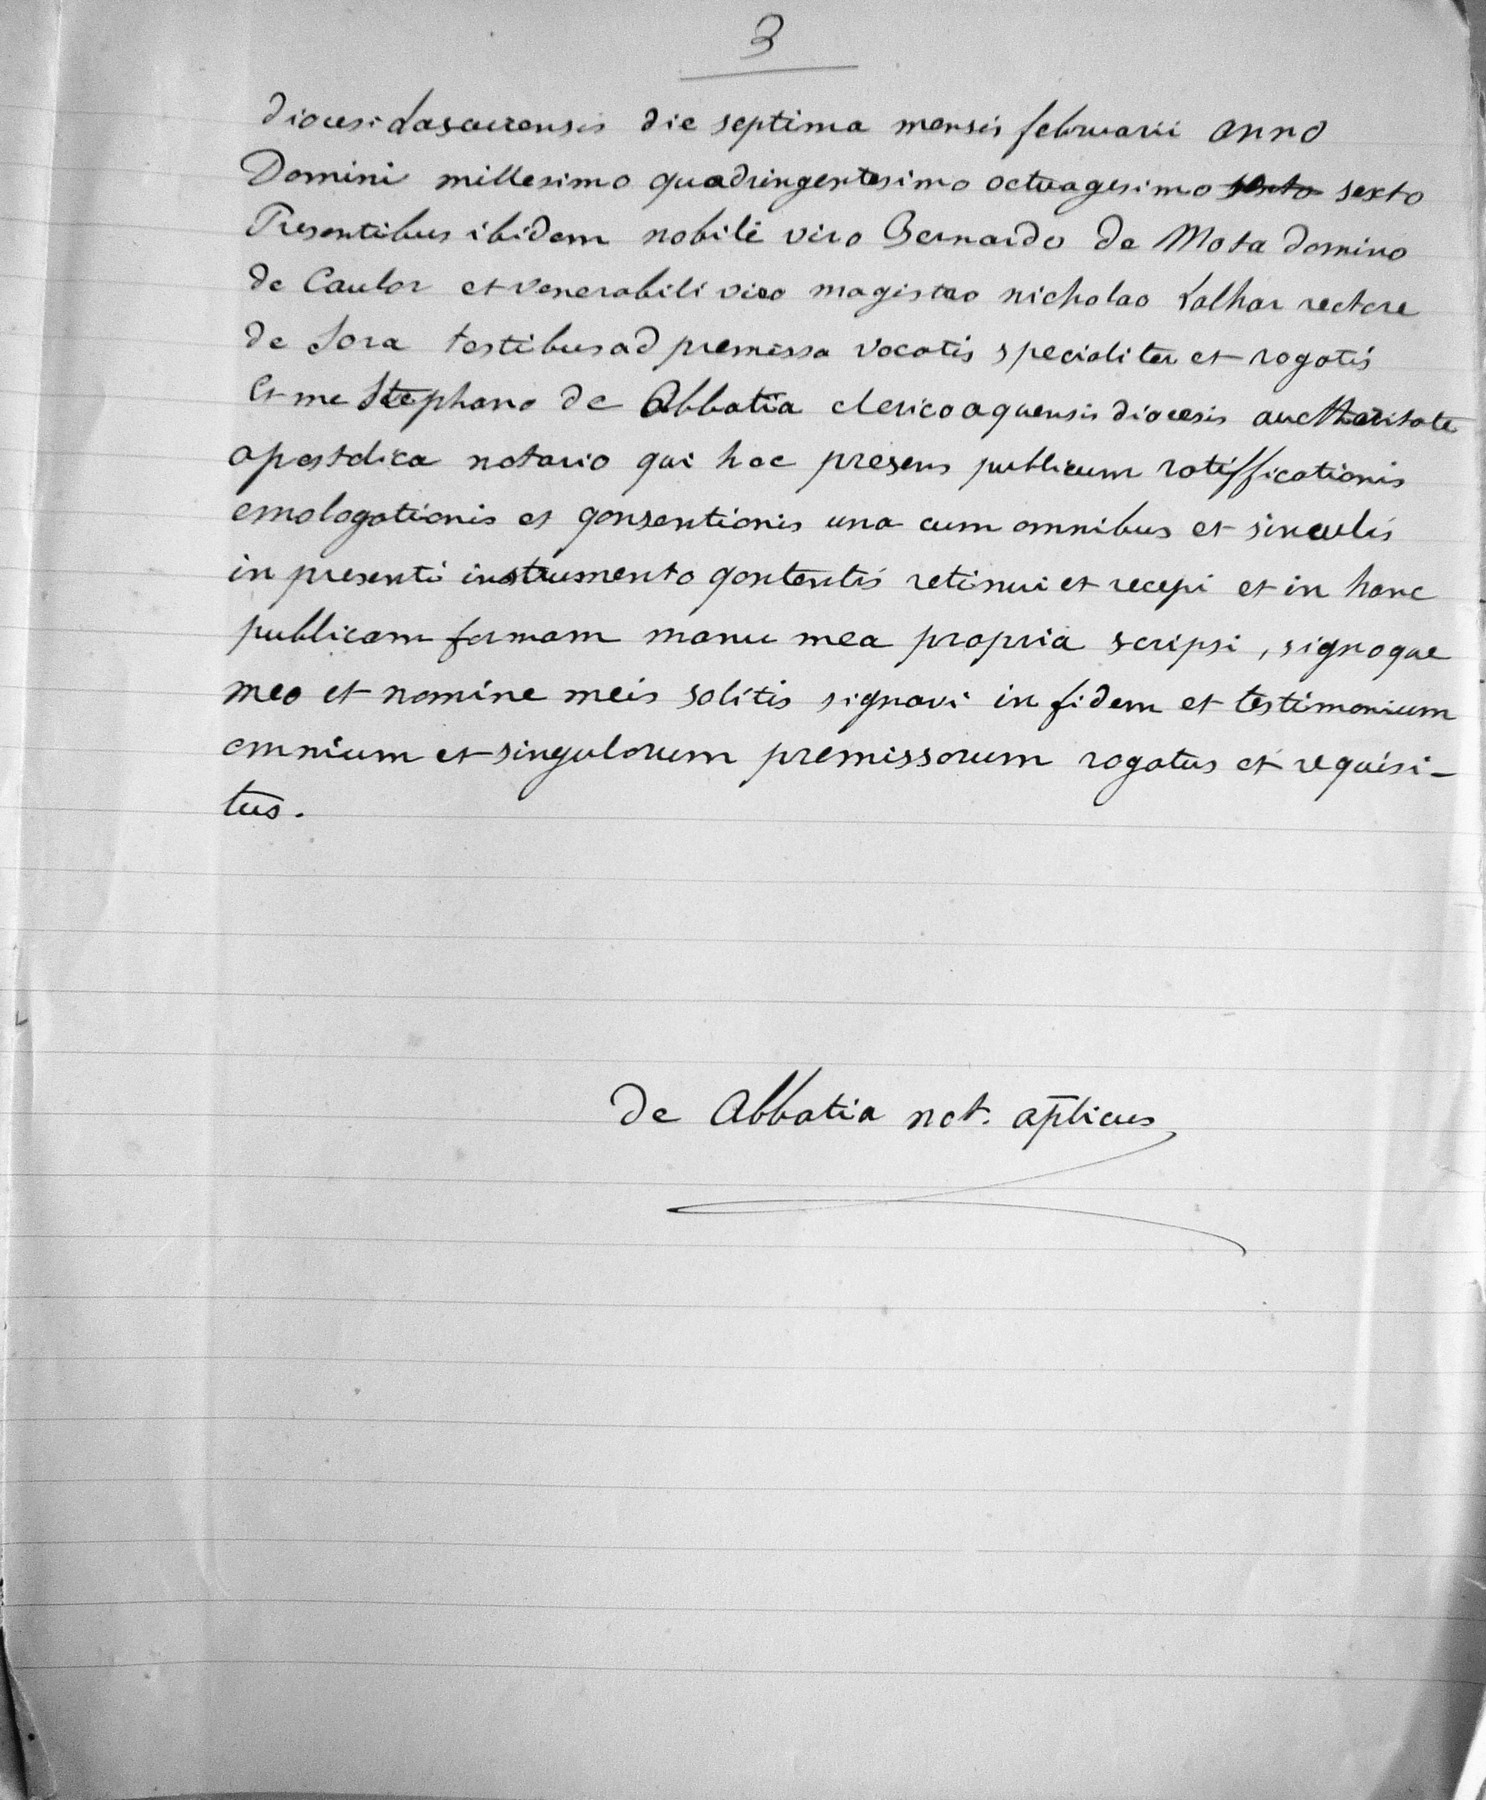 3
diocesi Lascurensis die septima mensis februarii anno
Domini millesimo quadringentesimo octuagesimo sexto sexto
Presentibus ibidem nobili viro Bernardo de Mota domino
de Caulor et venerabili viro magistro nicholao Lalhar rectore
de Sora testibus ad premissa vocatis specialiter et rogatis
Et me Stephano de Abbatia clerico aquensis diocesis aucthoritate
apostolica notario qui hoc presens publicum ratifficationis
emologationis et qonsentionis una cum omnibus et sinculis
in presenti instrumento qontentis retinui et recepi et in hanc
publicam formam manu mea propria scripsi, signoque
meo et nomine meis solitis signavi in fidem et testimonium
omnium et singulorum premissorum rogatus et requisi-
tus.
de Abbatia not. aplicus